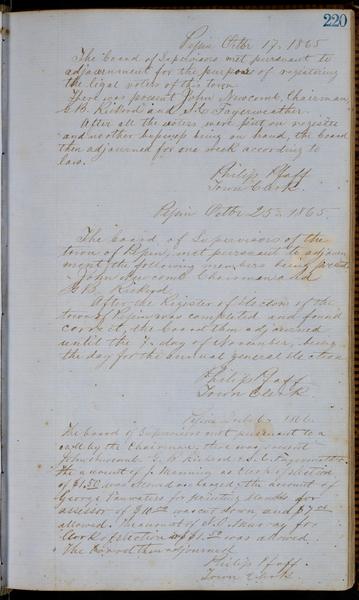 220
Pepin Octbr 17, 1865
The board of Supervisors met persuant to
adjournment for the purpose of registering
the legal voters of this town
There was present John Newcomb, Chairman,
G. B. Rickord and S. L. Fayerweather.
After all the voters were put on register
and no other buisness being on hand, the board
then adjourned for one week according to
law.
Philip Pfaff
Town Clerk.
Pepin Octbr 25th 1865.
The board of Supervisors of the
town of Pepin, met persuant to adjourn
ment, the following members being present
John Newcomb Chairman and
G. B. Rickord.
After the Register of Electors of the
town of Pepin was completed and found
correct, the board then adjourned
until the 7th day of November, being
the day for the annual general election
Philip Pfaff
Town Clerk
Pepin
The board of Supervisors met persuant to a
call by the Chairman, there was present
John Newcomb G. B. Rickord & S. L. Fayerweather
the account of J. Manning as Clerk of Election
of $1.50 was allowed the account of
George for printing blanks for
assessor of $10.00 was cut down and $7.00
allowed. The account of for
Clerk of Election of $1.50 was allowed.
The board then adjourned
Philip Pfaff.
Town Clerk